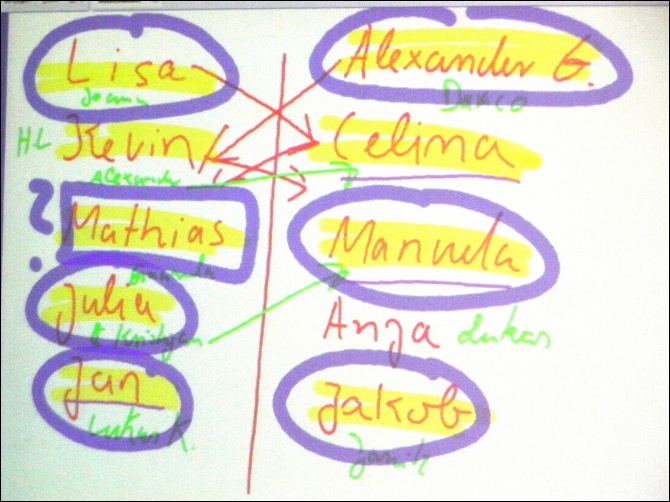 Lisa
Joann
HL Kevin
Alexander
? Mathias
Julia
& Kristijan
Jan
Lukas K.
Alexander G.
Darco
Celina
Manuela
Anja Lukas
Jakob
Janik